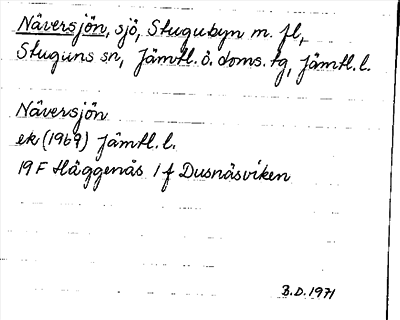 Näversjön, sjö, Stugubyn m. fl,
Stuguns sn, Jämtl. ö. doms. tg, Jämtl. l.
Näversjön
ek (1969) Jämtl. l.
19 F Häggenås 1 f Dusnäsviken
B.D. 1971